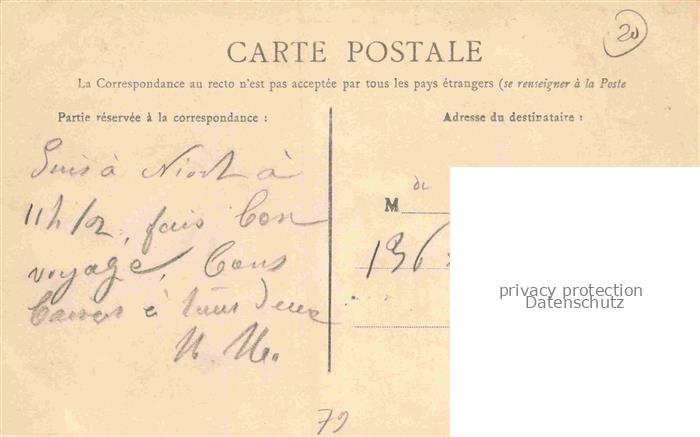 20
CARTE POSTALE
La Correspondance au recto n'est pas acceptée par tous les pays étrangers (se renseigner à la Poste
Partie réservée à la correspondance :
Adresse du destinataire :
Suis à Niort à
11h 1/2, fais bon
voyage, bons
baisers à tous deux
M
136
privacy protection
Datenschutz
79